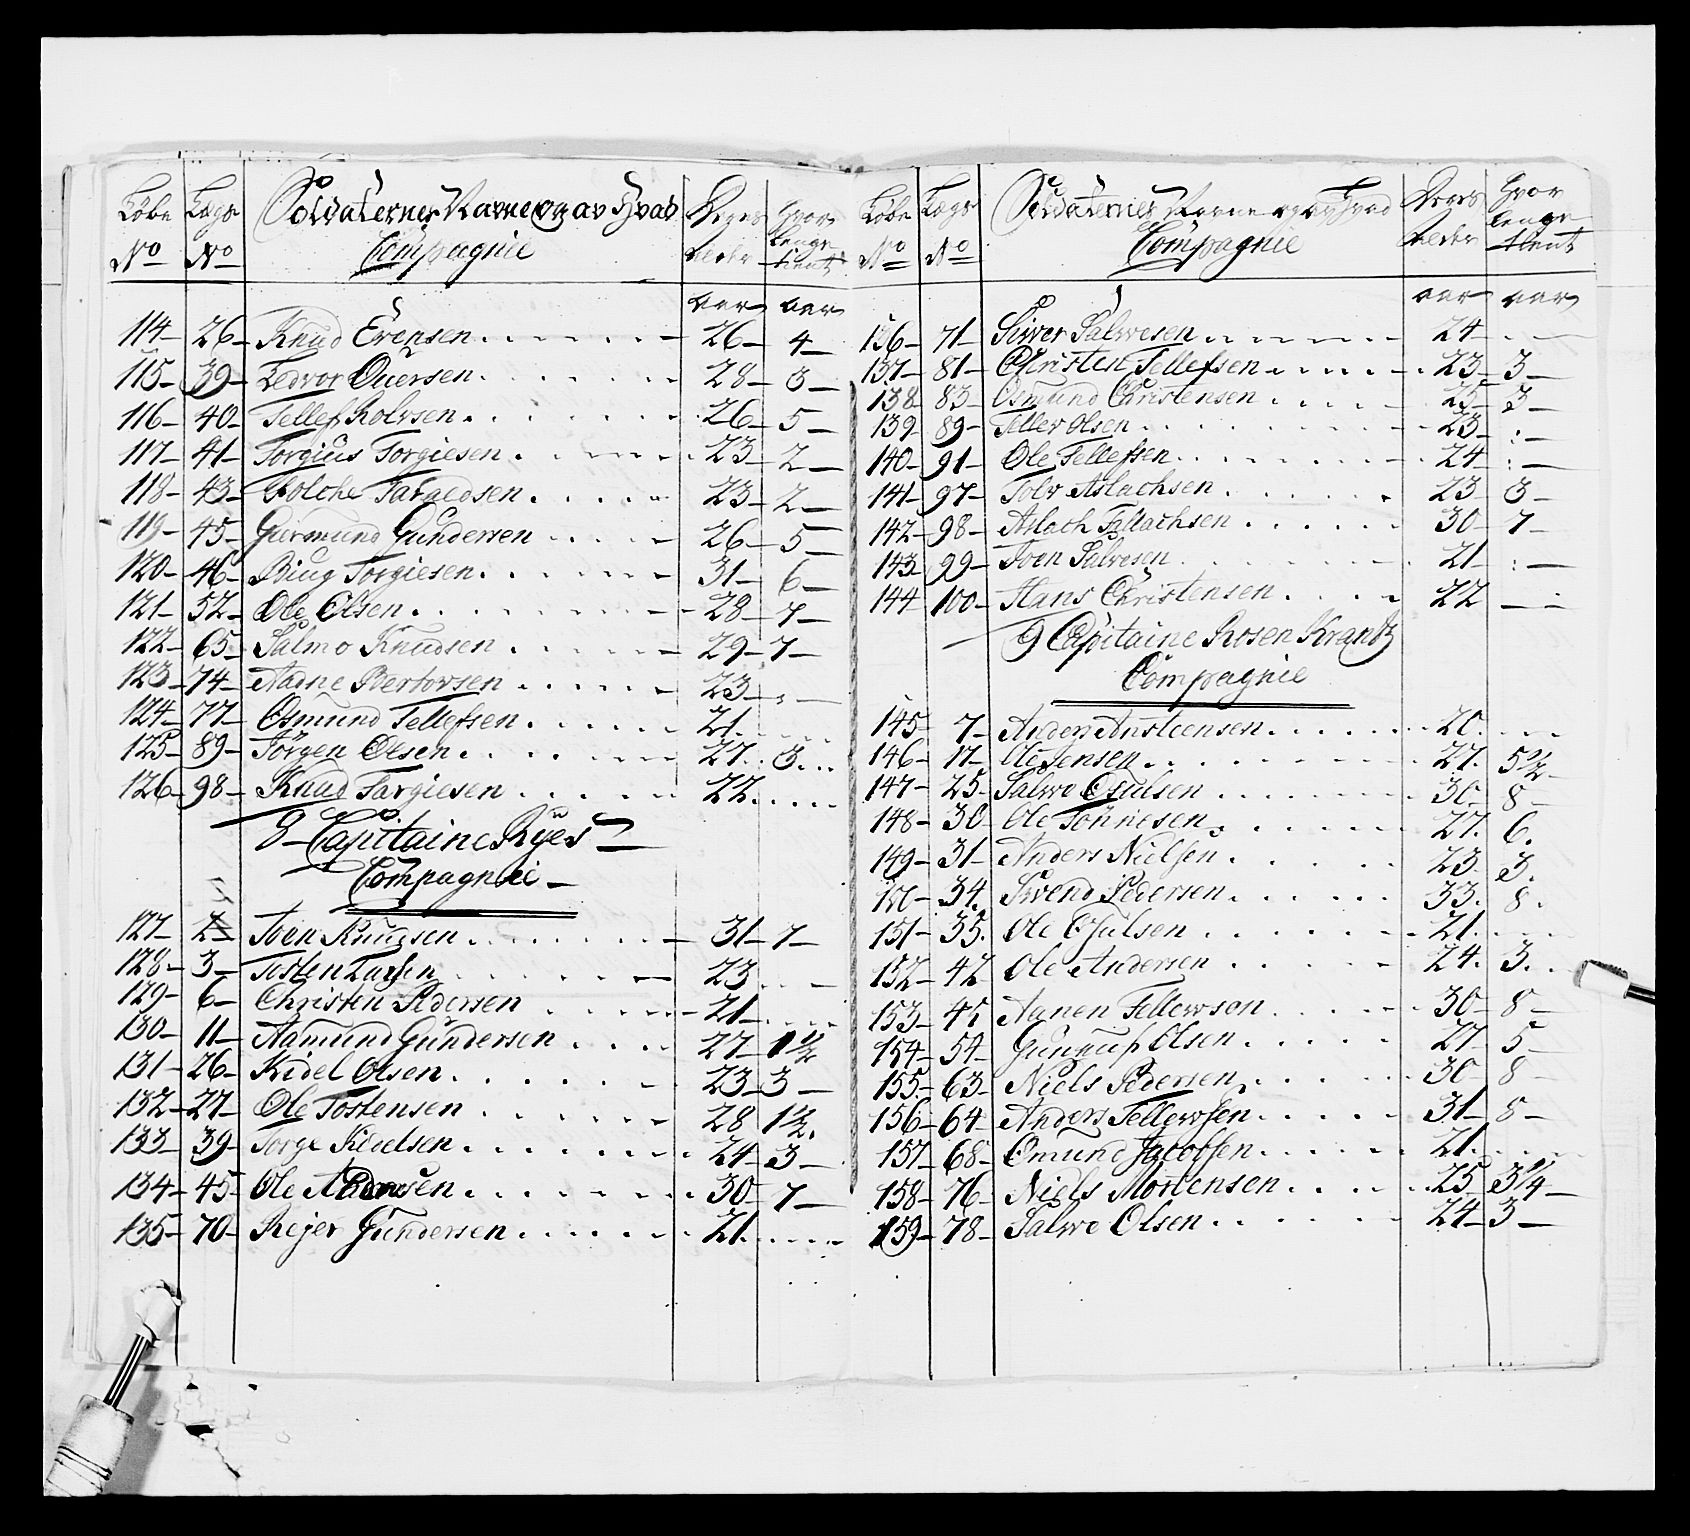 Løbe Lægs Soldaternes Navne og av Hvad Deres Hvor
No No Compagnie Alder lenge tient
aar aar
114 - 26 - Knud Evensen 26 - 4 -
115 - 39 - Ledvor Ouersen 28 - 3 -
116 - 40 - Tellef Rolvsen 26 - 5 -
117 - 41 - Torgius Torgiesen 23 - 2 -
118 - 43 - Folche Taraldsen 23 - 2 -
119 - 45 - Giermund Gundersen 26 - 5 -
120 - 46 - Biug Torgiesen 31 - 6 -
121 - 52 - Ole Olsen 28 - 7 -
122 - 65 - Salmo Knudsen 29 - 7 -
123 - 74 - Aadne Bertovsen 23 - -
124 - 77 - Osmund Tellefsen 21
125 - 89 - Jörgen Olsen 27 3
126 - 98 - Knud Targiesen 22
8 - Capitaine Ryes
Compagnie -
127 - 2 - Iven Knudsen 31 - 7 -
128 - 3 - Tosten Larsen 23
129 - 6 - Christen Pedersen 21 -
130 - 11 - Aamund Gundersen 27 - 1 1/2
131 - 26 - Kidel Olsen 23 3 -
132 - 27 - Ole Tostensen 28 1 1/2
133 - 39 - Torge Kidelsen 24 - 3 -
134 - 45 - Ole Andersen 30 - 7 -
135 - 70 - Rejer Gundersen 21
Løbe Lægs Soldaternes Navne og av Hvad Deres Hvor
No No Compagnie Alder lenge tient
aar aar
136 - 71 - Siwer Salwesen 24 -
137 - 81 - Christen Tellefsen 23 - 3 -
138 83 - Osmund Christensen 25 - 3 -
139 - 89 - Tellev Olsen 23 - : -
140 - 91 - Ole Tellefsen 24 - : -
141 - 97 - Tolv Aslachsen 23 - 3 -
142 - 98 - Aslach Tallachsen 30 - 7 -
143 - 99 - Iven Salvesen 21 - : -
144 100 - Hans Christensen 22
9 Capitaine Rosen Krantz
Compagnie
145 7 - Anders Ansteensen 20
146 - 17 - Ole Jensen 27. 5 1/2 -
147 - 25. Salwe Osulsen 30 - 8 -
148 - 30 - Ole Tönnesen 27. 6.
149 - 31 - Anders Nielsen 23. 3.
150 - 34. Swend Pedersen 33. 8.
151 - 35. Ole Osulsen 21.
152 - 42 Ole Andersen 24. 3.
153 - 45 Aanen Tellewson 30 - 8 -
154 - 54 - Gunnuf Olsen 27 5 -
155 - 63 - Niels Pedersen 30 - 8 -
156 - 64 - Anders Tellewsen 31 - 8 -
157 - 68 - Omund Jacobsen 21.
158 - 76 - Niels Mortensen 25 3 1/4 -
159 - 78 - Salwe Olsen 24 - 3 -